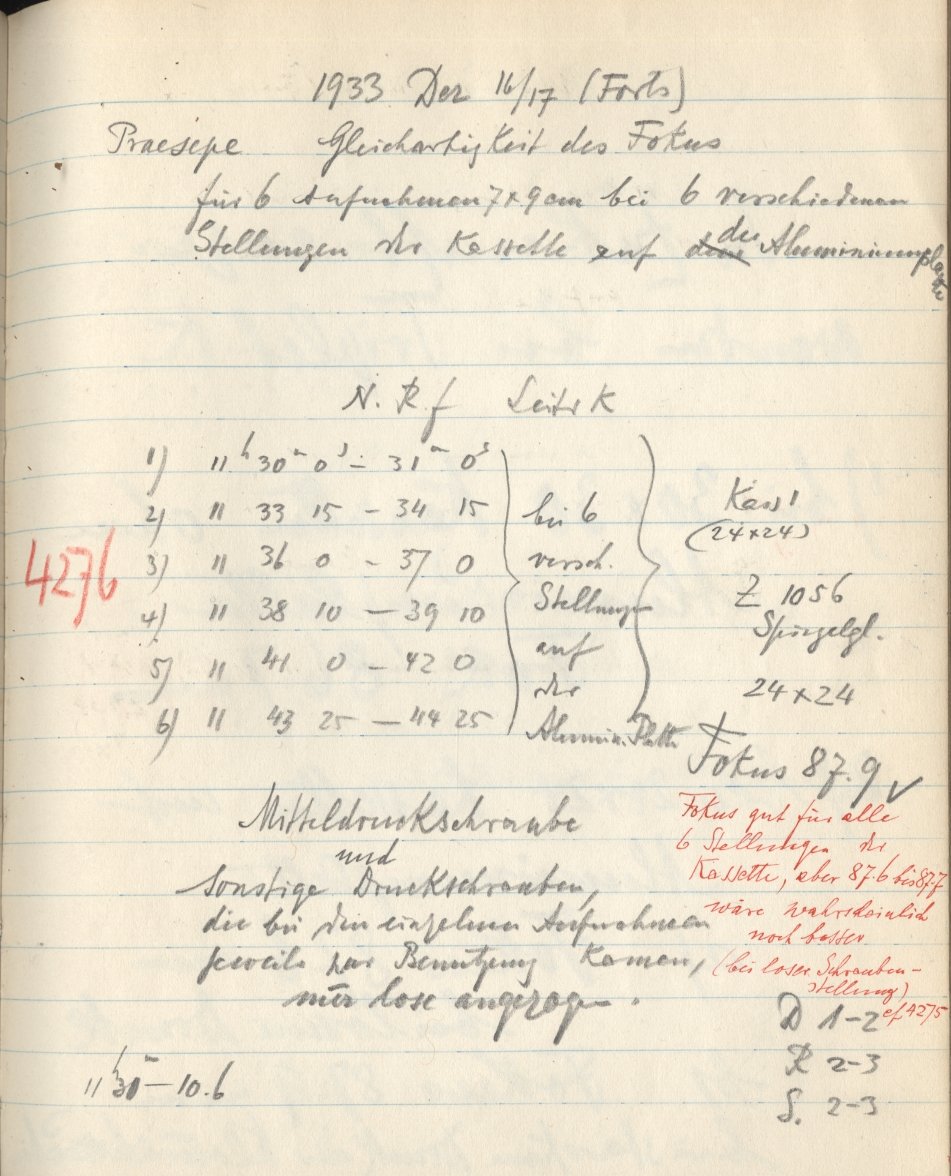 1933 Dez 16/17 (Forts)
Praesepe Gleichartigkeit des Fokus
für 6 Aufnahmen 7x9 cm bei 6 verschiedenen
Stellungen der Kassette auf der Aluminiumplatte
N. R f Seite K
1) 11h 30m 0s – 31m 0s
2) 11 33 15 – 34 15
3) 11 36 0 – 37 0
4) 11 38 10 – 39 10
5) 11 41 0 – 42 0
6) 11 43 25 – 44 25
4276
bei 6
versch.
Stellungen
auf
der
Alumin. Platte
Kass 1
(24x24)
Z 1056
Spiegelgl.
24x24
Fokus 87.9 ✓
Mitteldruckschraube
und
sonstige Druckschrauben,
die bei den einzelnen Aufnahmen
jeweils zur Benutzung kamen,
nur lose angezogen.
Fokus gut für alle
6 Stellungen der
Kassette, aber 87.6 bis 87.7
wäre wahrscheinlich
noch besser
(bei loser Schrauben-
stellung)
cf 4275
D 1–2
R 2–3
S. 2–3
11h 30m – 10.6